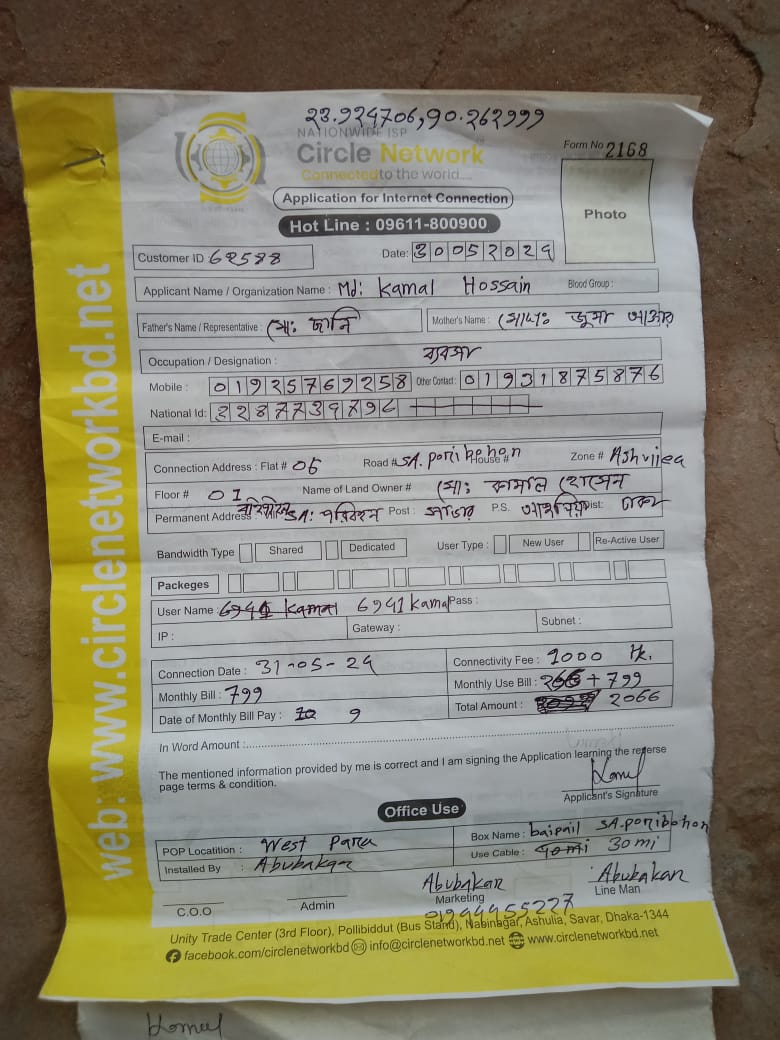 23.924706,90.262999
NATIONWIDE ISP
Circle Network
Connected to the world....
Form No 2168
Application for Internet Connection
Photo
Hot Line : 09611-800900
Customer ID 62588
Date: 30052024
Applicant Name / Organization Name : Md: Kamal Hossain Blood Group :
Father's Name / Representative : মো: জানি
Mother's Name : মোসা: জুমা আক্তার
Occupation / Designation : ব্যবসা
Mobile : 01925769258 Other Contact : 01931875876
National Id: 3287739796
E-mail :
Connection Address : Flat # 05 Road # SA. poribohon House # Zone # Ashuliea
Floor # 01 Name of Land Owner # মো: কামাল হোসেন
Permanent Address : বাইপাইল SA: পরিবহন Post : সাভার P.S. আশুলিয়া Dist: ঢাকা
Bandwidth Type Shared Dedicated User Type : New User Re-Active User
Packeges
User Name : 6941 Kamal Pass :
IP : Gateway : Subnet :
Connection Date : 31-05-24 Connectivity Fee : 1000 Tk.
Monthly Bill : 799 Monthly Use Bill : 266 + 799
Date of Monthly Bill Pay : 9 Total Amount : 2066
In Word Amount :
The mentioned information provided by me is correct and I am signing the Application learning the reverse
page terms & condition.
Kamul
Applicant's Signature
Office Use
POP Locatition : West Para Box Name : baipail SA.poribohon
Installed By : Abubakar Use Cable : 30 mi
Abubakar Abubakar
C.O.O Admin Marketing Line Man
01944955227
Unity Trade Center (3rd Floor), Pollibiddut (Bus Stand), Nabinagar, Ashulia, Savar, Dhaka-1344
facebook.com/circlenetworkbd info@circlenetworkbd.net www.circlenetworkbd.net
web: www.circlenetworkbd.net
Kamul